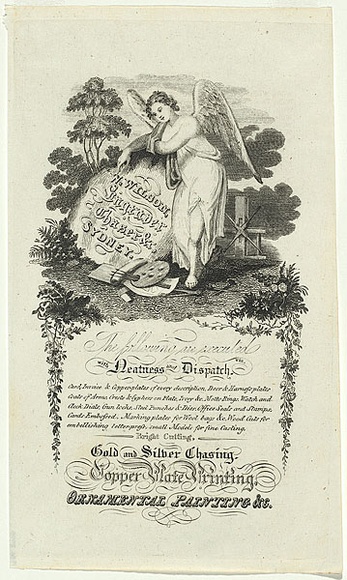 WILSON,
Engraver
Chaser &c.
SYDNEY.
The following are executed
WITH Neatness and Dispatch. VIZ
Card, Invoice & Copperplates of every description, Door & Harness plates
Coats of Arms, Crests & Cyphers on Plate, Ivory &c. Motto Rings, Watch and
Clock Dials, Gun locks, Steel Punches & Dies, Office Seals and Stamps,
Cards Embossed, Marking plates for Wool bags &c. Wood Cuts for
embellishing letter-press, small Models for fine Casting.
Bright Cutting,
Gold and Silver Chasing
Copper Plate Printing,
ORNAMENTAL PAINTING &c.